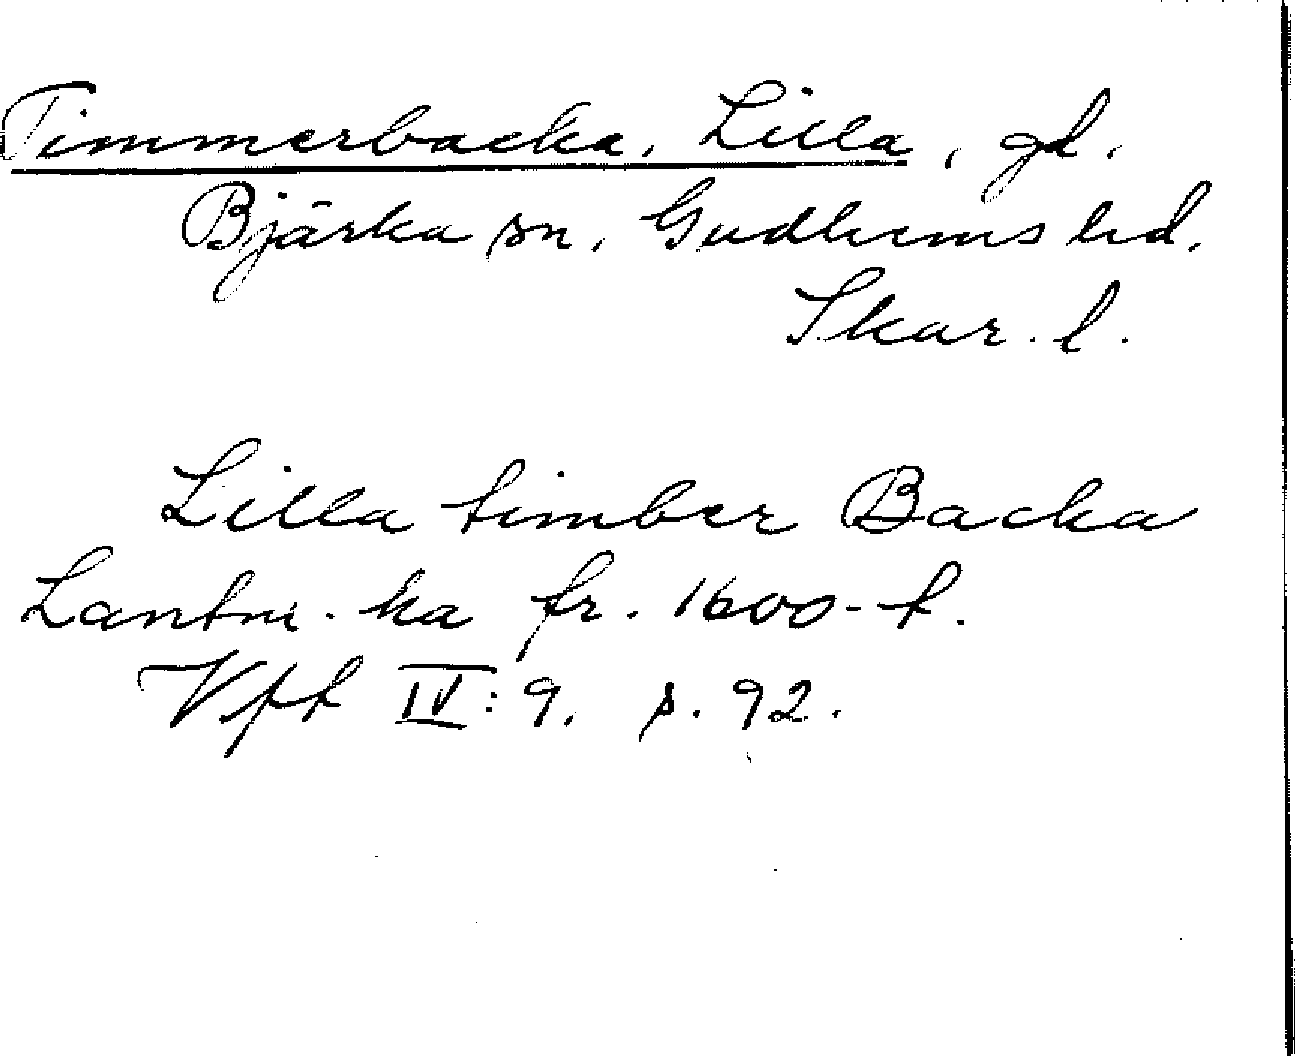 Timmerbacka, Lilla, gd.
Bjärka sn, Gudhems hd.
Skar. l.
Lilla timber Backa
Lantm. ka fr. 1600-t.
Vft IV:9. s. 92.